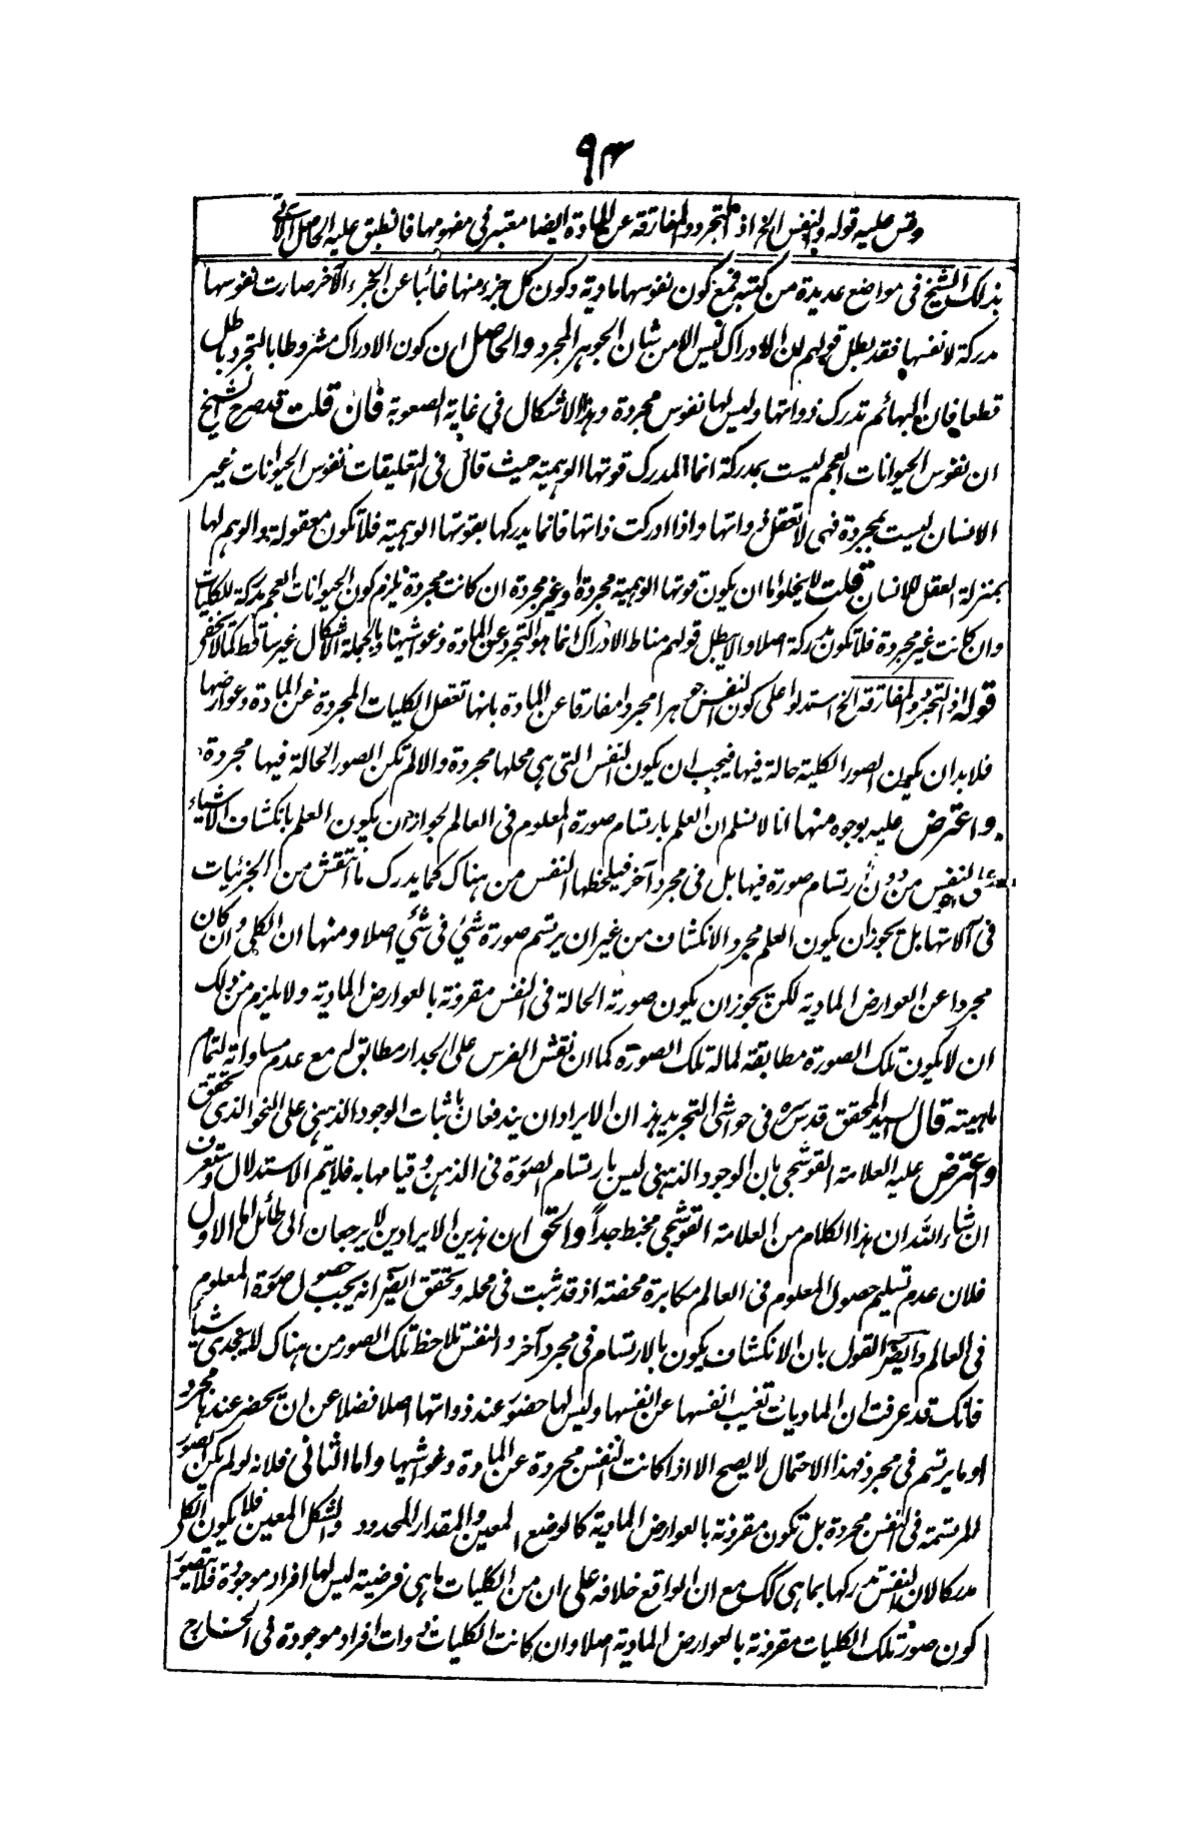 ٩٣
وقس عليه قوله والنفس الخ اذ التجرد والمفارقة عن المادة ايضا معتبر في مفهومها فانطبق عليه الحاصل الآتي
بذلك الشيخ في مواضع عديدة من كتبه فمع كون نفوسها مادية وكون كل جزء منها غائبا عن الجزء الآخر صارت نفوسها
مدركة لانفسها فقد بطل قولهم ان الادراك ليس الا من شان الجوهر المجرد والحاصل ان كون الادراك مشروطا بالتجرد باطل
قطعا فان البهائم تدرك ذواتها وليس لها نفوس مجردة وهذا الاشكال في غاية الصعوبة فان قلت قد صرح الشيخ
ان نفوس الحيوانات العجم ليست بمدركة انما المدرك قوتها الوهمية حيث قال في التعليقات نفوس الحيوانات غير
الانسان ليست بمجردة فهى لا تعقل ذواتها واذا ادركت ذاتها فانما يدركها بقوتها الوهمية فلا تكون معقولة والوهم لها
بمنزلة العقل للانسان قلت لا يخلو اما ان يكون قوتها الوهمية مجردة او غير مجردة ان كانت مجردة يلزم كون الحيوانات العجم مدركة للكليات
وان كانت غير مجردة فلا تكون مدركة اصلا والا بطل قولهم مناط الادراك انما هو التجرد عن المادة وغواشيها وبالجملة الاشكال غير ساقط كما لا يخفى
قوله اذ التجرد والمفارقة الخ استدلوا على كون النفس جوهرا مجردا مفارقا عن المادة بانها تعقل الكليات المجردة عن المادة وعوارضها
فلا بد ان يكون الصور الكلية حالة فيها فيجب ان يكون النفس التى هى محلها مجردة والا لم تكن الصور الحالة فيها مجردة
واعترض عليه بوجوه منها انا لا نسلم ان العلم بارتسام صورة المعلوم في العالم لجواز ان يكون العلم بانكشاف الاشياء
على النفس من دون ارتسام صورة فيها بل في مجرد آخر فيلحظها النفس من هناك كما يدرك ما انتقش من الجزئيات
في آلاتها بل يجوز ان يكون العلم مجرد الانكشاف من غير ان يرتسم صورة شئ في شئ اصلا ومنها ان الكلى وان كان
مجردا عن العوارض المادية لكن يجوز ان يكون صورته الحالة في النفس مقرونة بالعوارض المادية ولا يلزم من ذلك
ان لا يكون تلك الصورة مطابقة لما له تلك الصورة كما ان نقش الفرس على الجدار مطابق له مع عدم مساواته لتمام
ماهيته قال السيد المحقق قدس سره في حواشى التجريد هذان الايرادان يندفعان باثبات الوجود الذهنى على النحو الذى تحقق
واعترض عليه العلامة القوشجى بان الوجود الذهنى ليس بارتسام الصورة في الذهن وقيامها به فلا يتم الاستدلال وستعرف
ان شاء الله ان هذا الكلام من العلامة القوشجى مخبط جدا والحق ان هذين الايرادين لا يرجعان الى طائل اما الاول
فلان عدم تسليم حصول المعلوم في العالم مكابرة محضة اذ قد ثبت في محله وتحقق ايضا انه يجب حصول صورة المعلوم
في العالم وايضا القول بان الانكشاف يكون بالارتسام في مجرد آخر والنفس تلاحظ تلك الصور من هناك لا يجدى شيئا
فانك قد عرفت ان الماديات تغيب انفسها عن انفسها وليس لها حضور عند ذواتها اصلا فضلا عن ان يحضر عندها مجرد
او ما يرتسم في مجرد فهذا الاحتمال لا يصح الا اذا كانت النفس مجردة عن المادة وغواشيها واما الثانى فلانه لو لم يكن الصور
المرتسمة في النفس مجردة بل تكون مقرونة بالعوارض المادية كالوضع المعين والمقدار المحدود والشكل المعين فلا يكون الكلى
مدركا لان النفس تدركها بما هى كك مع ان الواقع خلافه على ان من الكليات ما هى فرضية ليس لها افراد موجودة فلا يتصور
كون صورة تلك الكليات مقرونة بالعوارض المادية اصلا وان كانت الكليات ذوات افراد موجودة في الخارج